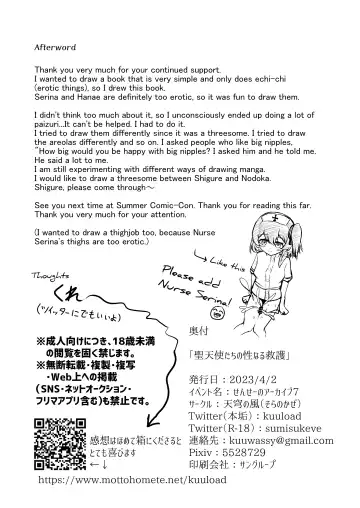 Afterword
Thank you very much for your continued support.
I wanted to draw a book that is very simple and only does echi-chi
(erotic things), so I drew this book.
Serina and Hanae are definitely too erotic, so it was fun to draw them.
I didn't think too much about it, so I unconsciously ended up doing a lot of
paizuri...It can't be helped. I had to do it.
I tried to draw them differently since it was a threesome. I tried to draw
the areolas differently and so on. I asked people who like big nipples,
"How big would you be happy with big nipples? I asked him and he told me.
He said a lot to me.
I am still experimenting with different ways of drawing manga.
I would like to draw a threesome between Shigure and Nodoka.
Shigure, please come through～
See you next time at Summer Comic-Con. Thank you for reading this far.
Thank you very much for your attention.
(I wanted to draw a thighjob too, because Nurse
Serina's thighs are too erotic.)
Like this
Please add
Nurse Serina!
Thoughts
くれ～
(ツイッターにでもいいよ)
※成人向けにつき、18歳未満
の閲覧を固く禁じます。
※無断転載・複製・複写
・Web上への掲載
(SNS・ネットオークション・
フリマアプリ含む)も禁止です。
感想はほめて箱にくださると
とても喜びます
←↓
奥付
「聖天使たちの性なる救護」
発行日：2023/4/2
イベント名：せんせーのアーカイブ7
サークル：天穹の風(そらのかぜ)
Twitter(本垢)：kuuload
Twitter(R-18)：sumisukeve
連絡先：kuuwassy@gmail.com
Pixiv：5528729
印刷会社：サングループ
https://www.mottohomete.net/kuuload